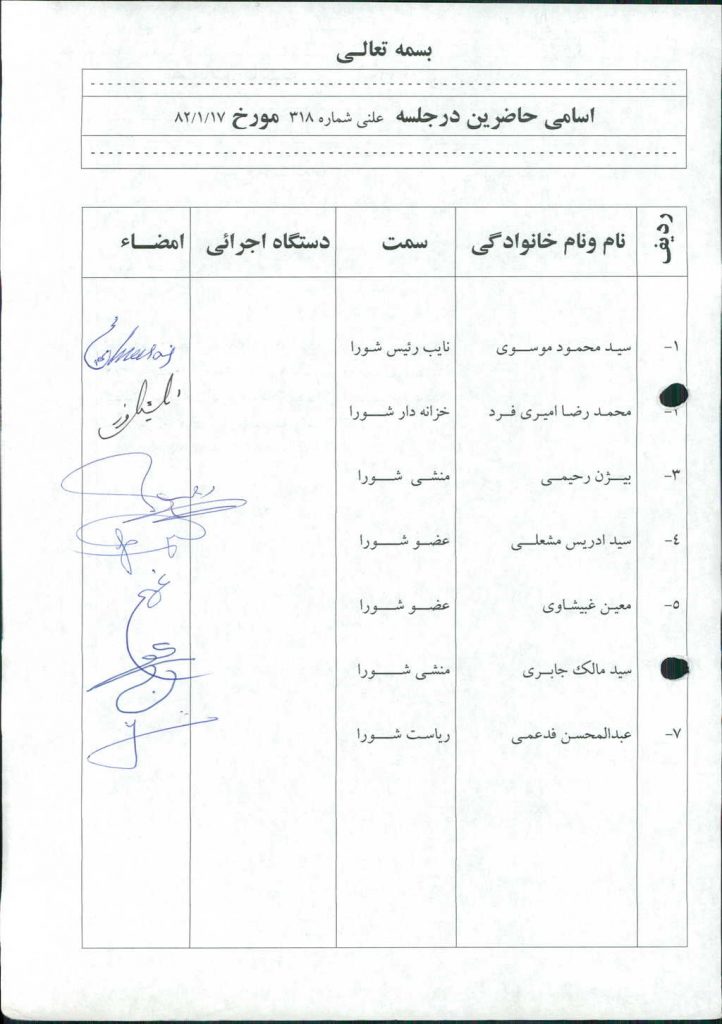 بسمه تعالی
اسامی حاضرین درجلسه علنی شماره ۳۱۸ مورخ ۸۲/۱/۱۷
ردیف نام ونام خانوادگی سمت دستگاه اجرائی امضاء
۱- سید محمود موسوی نایب رئیس شورا
محمد رضا امیری فرد خزانه دار شورا
۳- بیژن رحیمی منشی شورا
٤- سید ادریس مشعلی عضو شورا
۵- معین غبیشاوی عضو شورا
سید مالک جابری منشی شورا
۷- عبدالمحسن فدعمی ریاست شورا